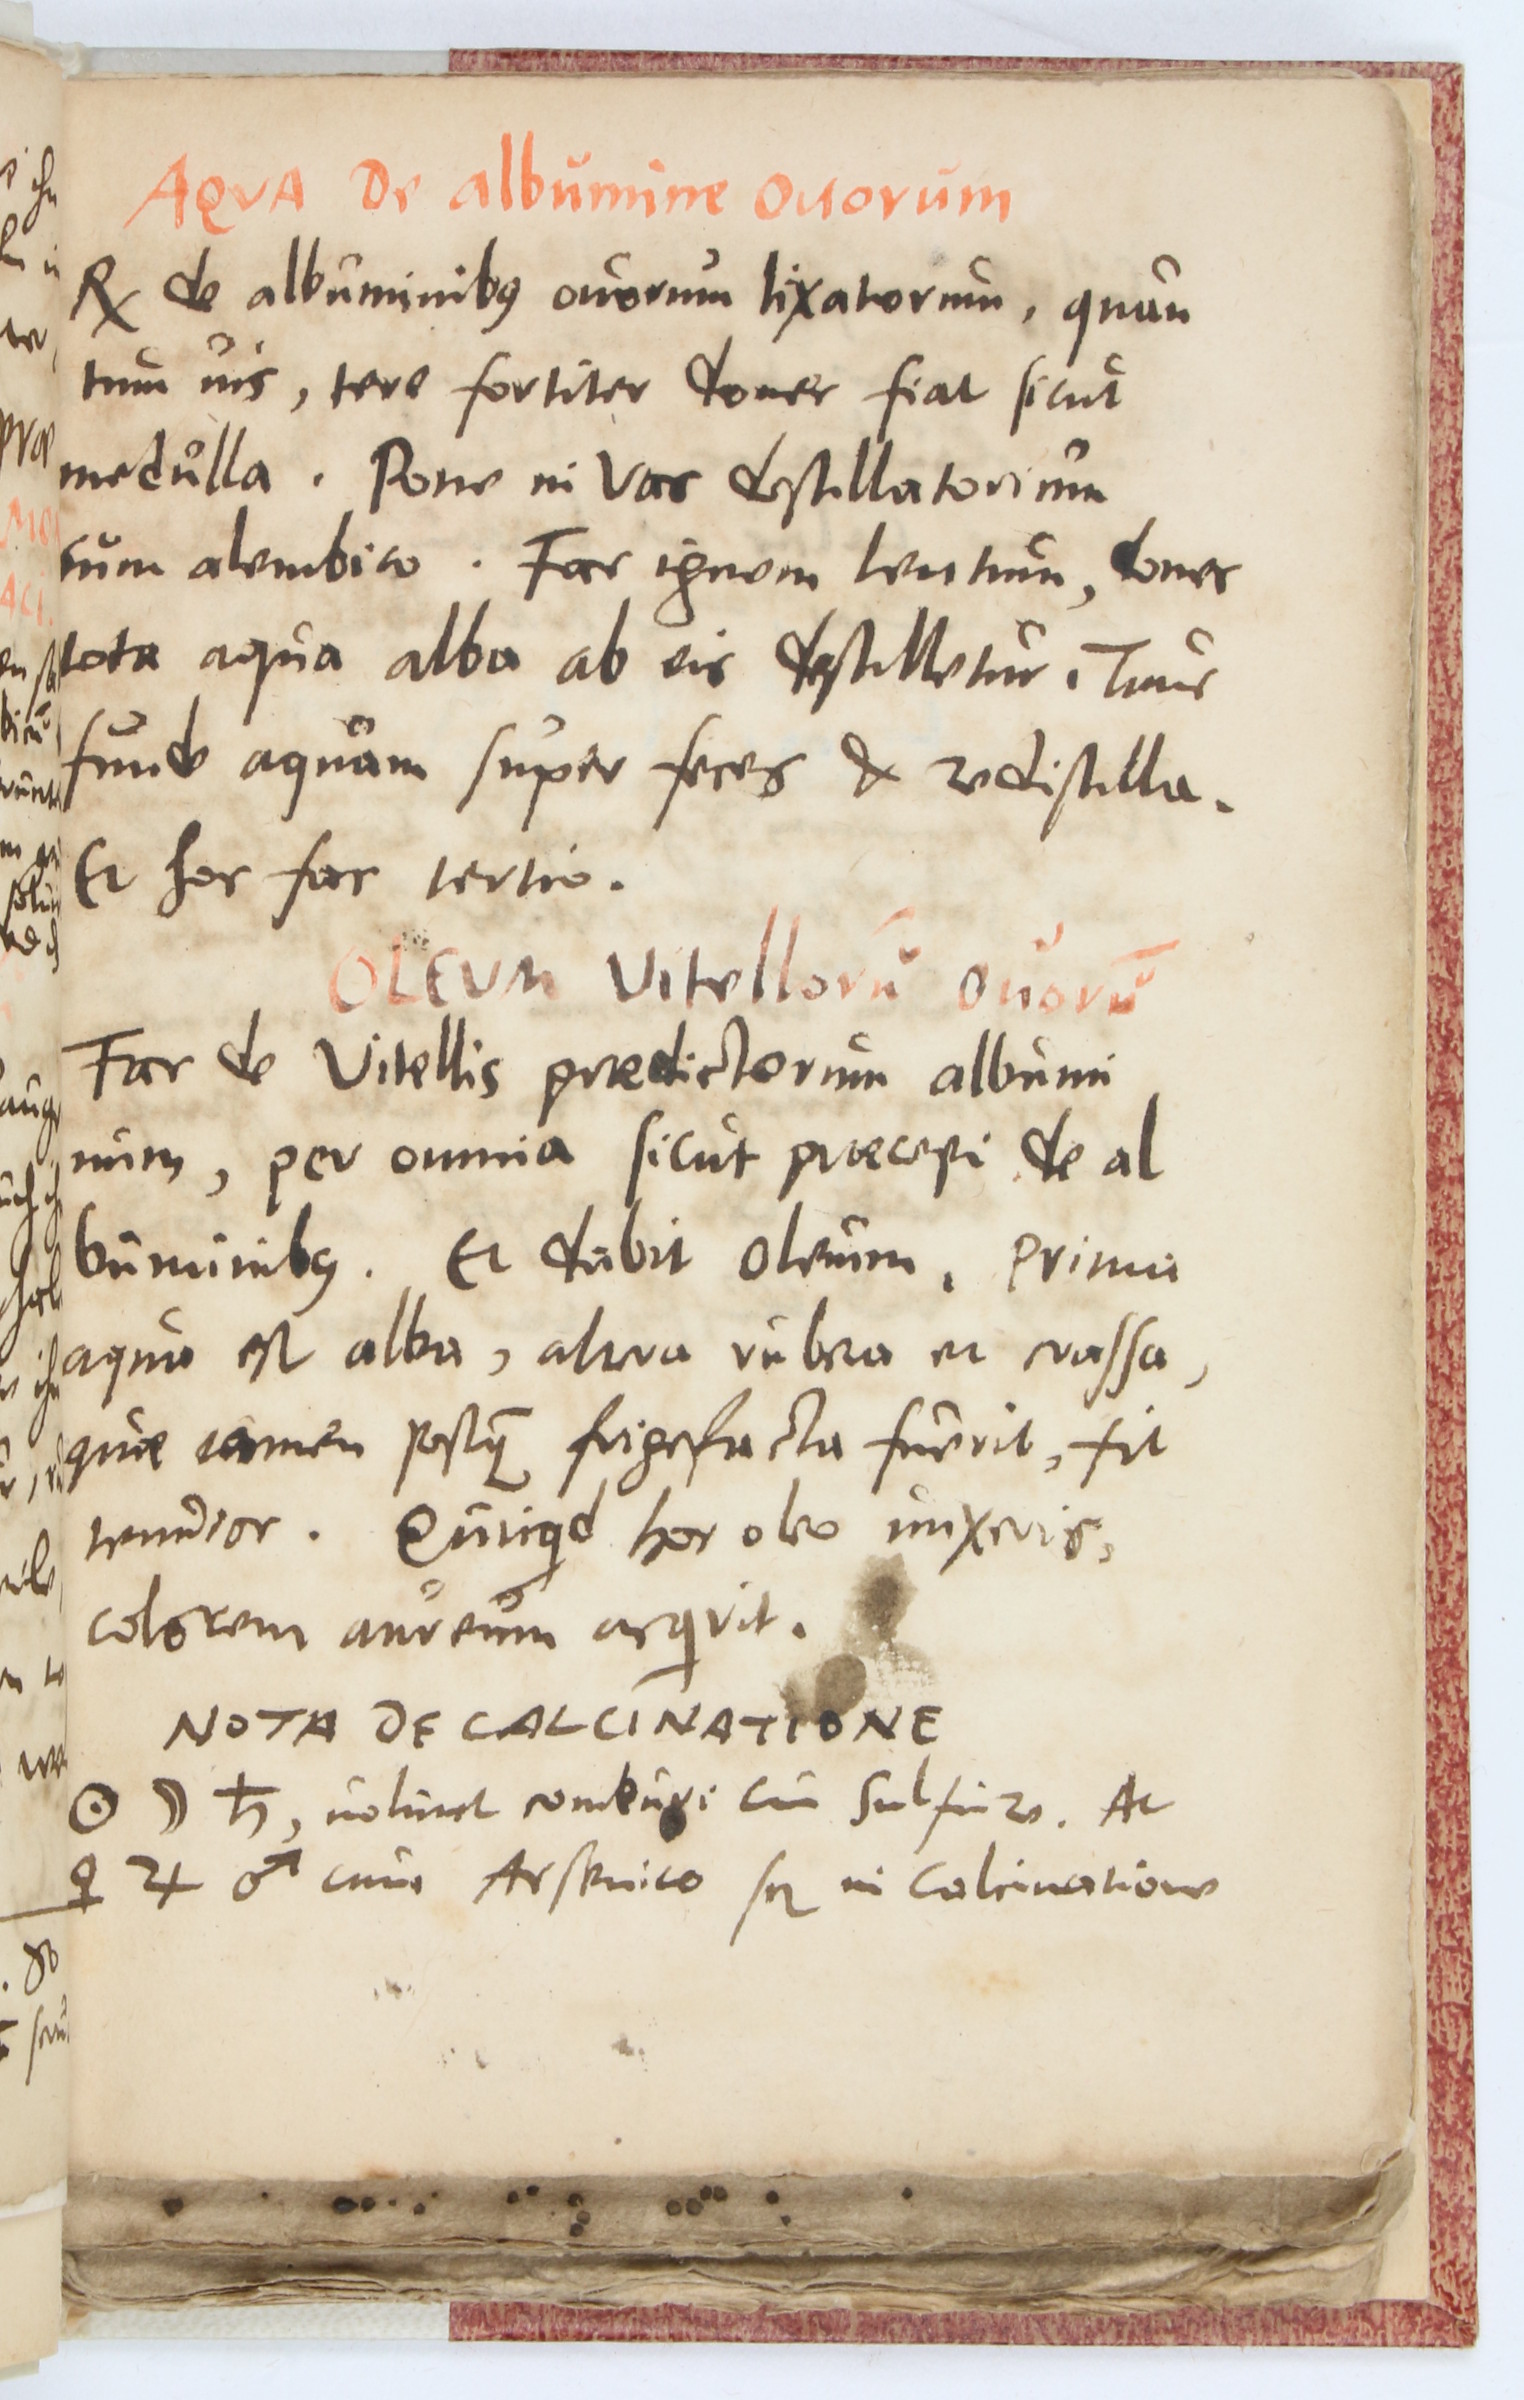 AQVA De albumine ovorum
℞ de albuminibꝰ ouorum lixatorum, quan
tum uis, tere fortiter donec fiat sicut
medulla. Pone in Vas destillatorium
cum alembico. Fac ignem lentum, donec
tota aqua alba ab eis destilletur. Tunc
funde aquam super feces & redistilla.
Et hoc fac tertio.
OLEVM Vitellorū ouorū
Fac de Vitellis prædictorum albumi
num, per omnia sicut præcepi de al
buminibꝰ. Et dabit oleum. Prima
aqua est alba, altera rubea et crassa,
quæ tamen postꝗ̃ frigefacta fuerit, fit
tenuior. Quicqd hoc oleo unxeris,
colorem aureum acqrit.
NOTA DE CALCINATIONE
☉ ☽ ♄, uolunt comburi cum sulfure. At
♀ ♃ ♂ cum Arsenico sꝫ in calcinatione